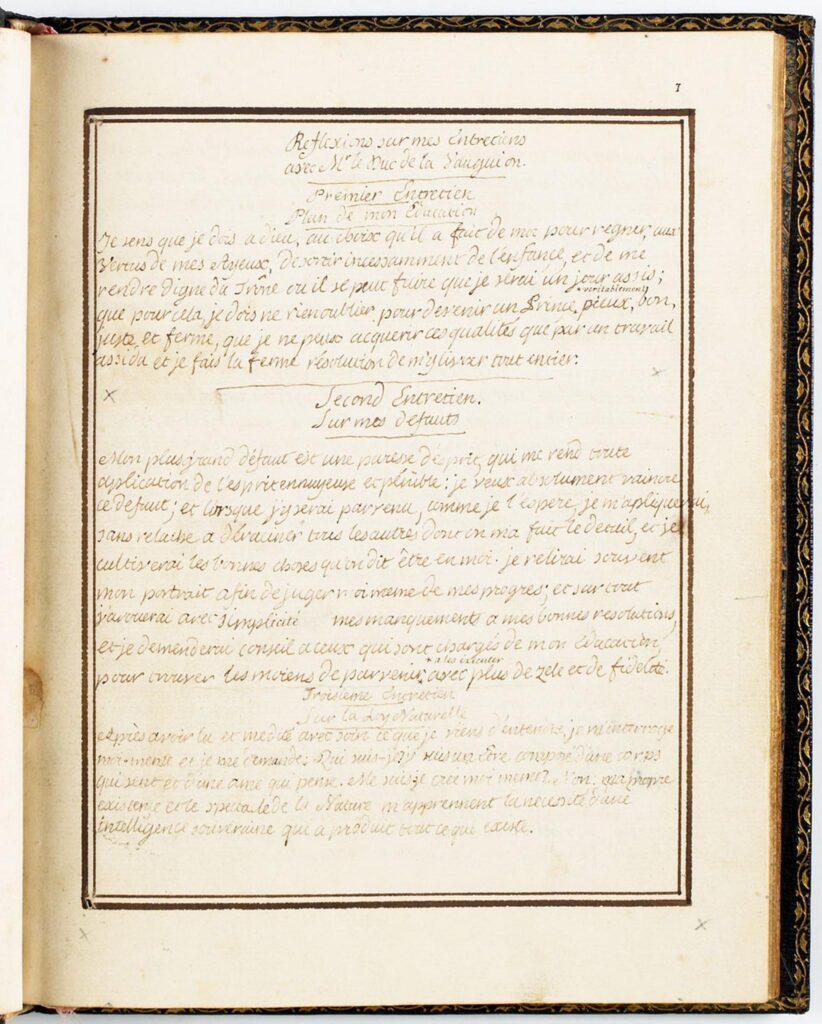 1
Reflexions sur mes Entretiens
avec Mr le Duc de la Vauguion.
Premier Entretien
Plan de mon Education
Je sens que je dois a dieu, au choix qu'il a fait de moi pour regner, aux
Vertus de mes Ayeux, de sortir incessamment de l'enfance, et de me
rendre digne du Trône ou il se peut faire que je serai un jour assis;
+ veritablement
que pour cela, je dois ne rien oublier, pour devenir un Prince, pieux, bon,
juste, et ferme, que je ne peux acquerir ces qualités que par un travail
assidu et je fais la ferme résolution de m'y livrer tout entier.
Second Entretien.
Sur mes defauts
Mon plus grand défaut est une paresse d'esprit, qui me rend toute
application de l'esprit ennuyeuse et penible: je veux absolument vaincre
ce defaut; et lorsque j'y serai parvenu, comme je l'espere, je m'apliquerai,
sans relache a déraciner tous les autres dont on m'a fait le detail, et je
cultiverai les bonnes choses qu'on dit être en moi. je relirai souvent
mon portrait afin de juger moi meme de mes progres; et sur tout
j'avouerai avec simplicité mes manquements a mes bonnes resolutions,
et je demenderai conseil a ceux qui sont chargés de mon Education,
+ a les executer
pour trouver les moiens de parvenir, avec plus de zele et de fidelité.
Troisieme Entretien
Sur la Loy Naturelle
Après avoir lu et medité avec soin ce que je viens d'entendre, je m'interroge
moi-meme et je me demande: Qui suis-je? je suis un être composé d'une corps
qui sent et d'une ame qui pense. Me suis je créé moi meme? Non: ma propre
existence et le spectacle de la Nature m'apprennent la nécessité d'une
intelligence souveraine qui a produit tout ce qui existe.